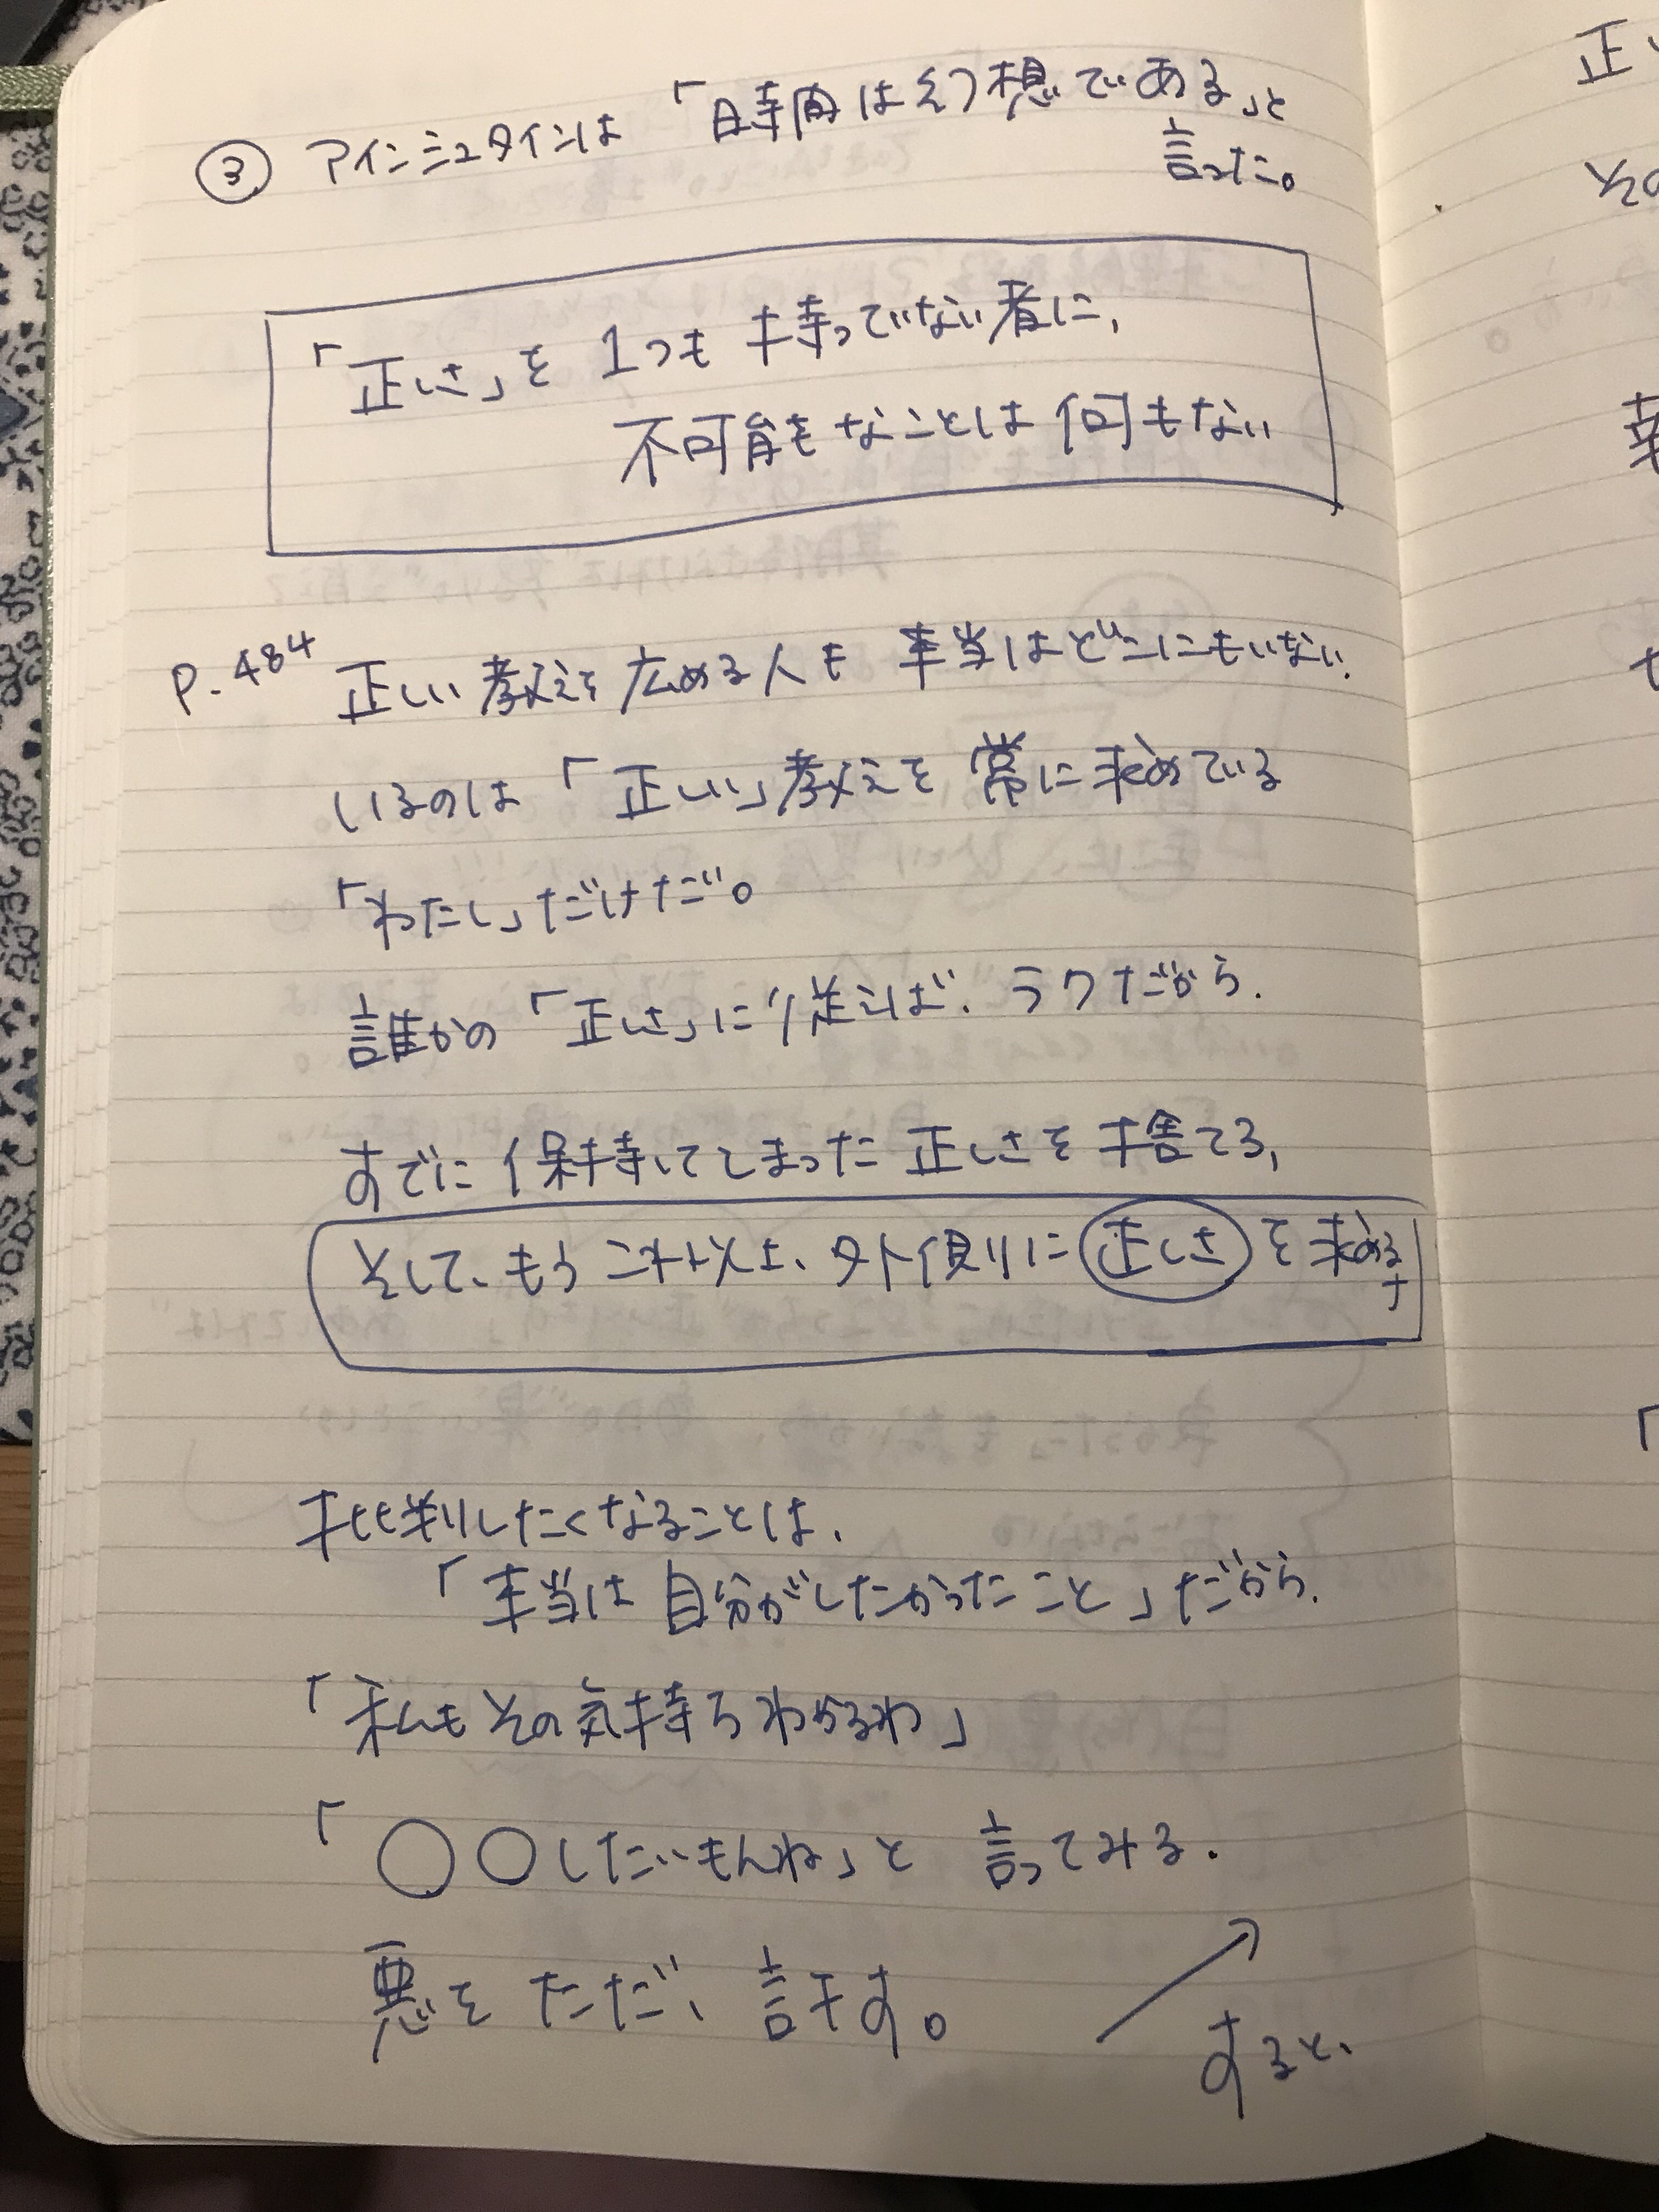 ③ アインシュタインは「時間は幻想である」と
言った。
「正しさ」を1つも持っていない者に、
不可能なことは何もない
P.484 正しい教えを広める人も本当はどこにもいない.
いるのは「正しい」教えを常に求めている
「わたし」だけだ。
誰かの「正しさ」に従えば、ラクだから.
すでに保持してしまった正しさを捨てろ,
そして、もうこれ以上、外側に正しさを求める
な
批判したくなることは、
「本当は自分がしたかったこと」だから.
「私もその気持ちわかるわ」
「○○したいもんね」と言ってみる.
悪をただ、許す。
すると、
正し
その
幸
「